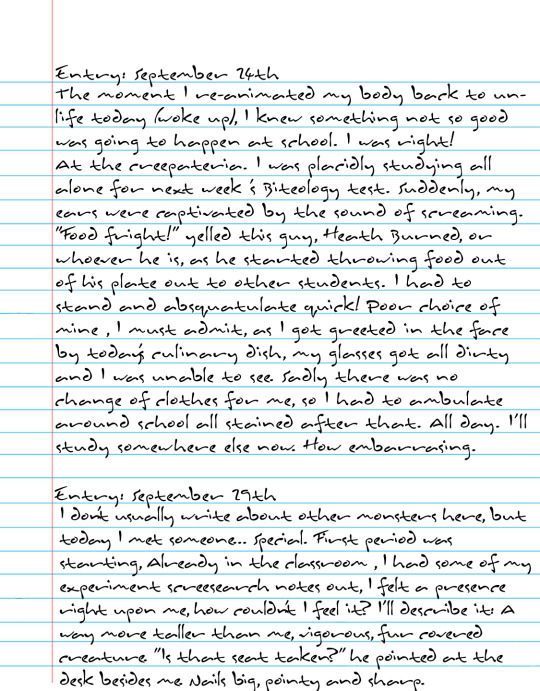 Entry: September 24th
The moment I re-animated my body back to un-
life today (woke up), I knew something not so good
was going to happen at school. I was right!
At the creepateria. I was placidly studying all
alone for next week´s Biteology test. Suddenly, my
ears were captivated by the sound of screaming.
"Food fright!" yelled this guy, Heath Burned, or
whoever he is, as he started throwing food out
of his plate out to other students. I had to
stand and absquatulate quick! Poor choice of
mine , I must admit, as I got greeted in the face
by today´s culinary dish, my glasses got all dirty
and I was unable to see. Sadly there was no
change of clothes for me, so I had to ambulate
around school all stained after that. All day. I'll
study somewhere else now. How embarrasing.
Entry: September 29th
I don´t usually write about other monsters here, but
today I met someone.. Special. First period was
starting, Already in the classroom , I had some of my
experiment screesearch notes out, I felt a presence
right upon me, how couldn´t I feel it? I'll describe it: A
way more taller than me, vigorous, fur covered
creature. "Is that seat taken?" he pointed at the
desk besides me. Nails big, pointy and sharp.